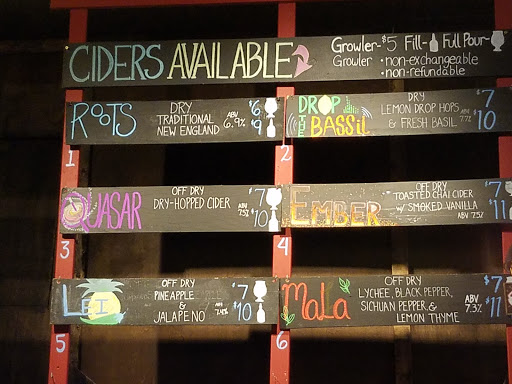 CIDERS AVAILABLE
Growler-$5 Fill- Full Pour-
Growler •non-exchangeable
•non-refundable
ROOTS
DRY
TRADITIONAL
NEW ENGLAND
ABV
6.9%
$6
$9
1
DROP
THE
BASSil
DRY
LEMON DROP HOPS
& FRESH BASIL
ABV
7.7%
$7
$10
2
JASAR
OFF DRY
DRY-HOPPED CIDER
ABV
7.5%
$7
$10
3
EMBER
OFF DRY
TOASTED CHAI CIDER
w/ SMOKED VANILLA
ABV 7.5%
$7
$11
4
LEI
OFF DRY
PINEAPPLE
&
JALAPENO
ABV
7.4%
$7
$10
5
MALA
OFF DRY
LYCHEE, BLACK PEPPER,
SICHUAN PEPPER &
LEMON THYME
ABV
7.3%
$7
$11
6